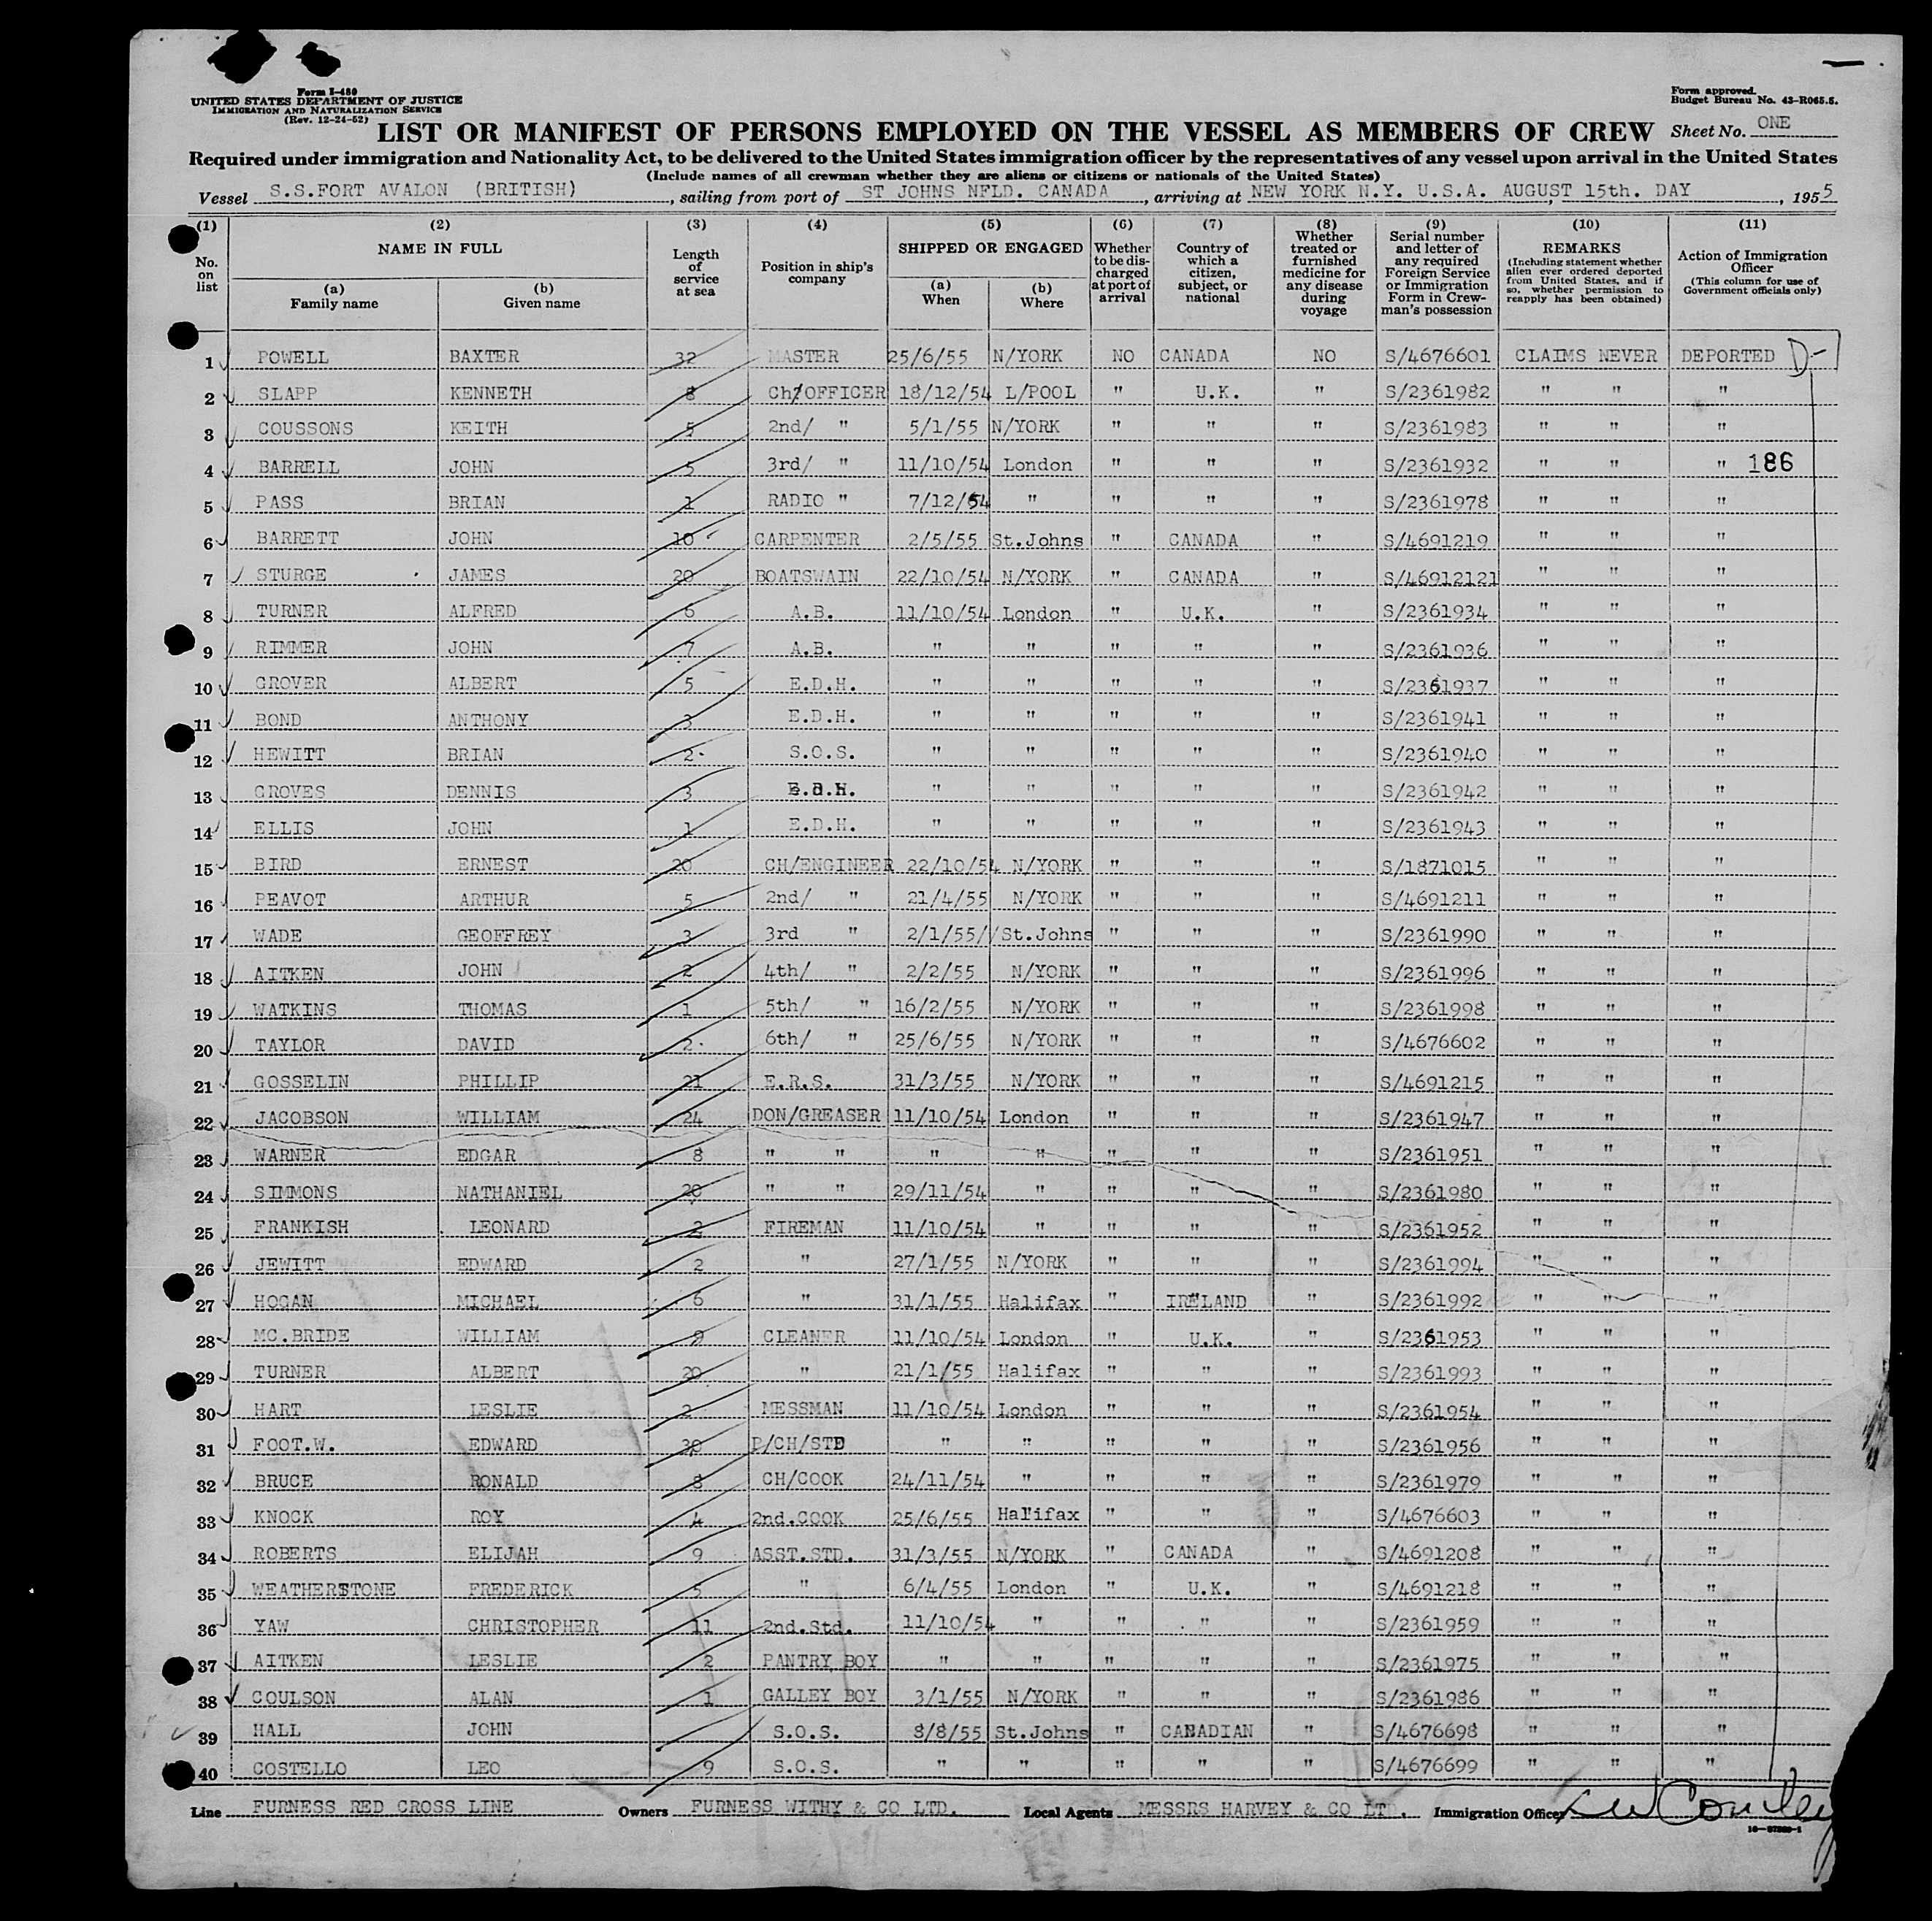 Form I-480
UNITED STATES DEPARTMENT OF JUSTICE
IMMIGRATION AND NATURALIZATION SERVICE
(Rev. 12-24-52)
Form approved.
Budget Bureau No. 43-R065.5.
LIST OR MANIFEST OF PERSONS EMPLOYED ON THE VESSEL AS MEMBERS OF CREW Sheet No. ONE
Required under immigration and Nationality Act, to be delivered to the United States immigration officer by the representatives of any vessel upon arrival in the United States
(Include names of all crewman whether they are aliens or citizens or nationals of the United States)
Vessel S.S.FORT AVALON (BRITISH), sailing from port of ST JOHNS NFLD. CANADA, arriving at NEW YORK N.Y. U.S.A. AUGUST 15th. DAY, 1955
(1) No. on list
(2) NAME IN FULL (a) Family name (b) Given name
(3) Length of service at sea
(4) Position in ship's company
(5) SHIPPED OR ENGAGED (a) When (b) Where
(6) Whether to be discharged at port of arrival
(7) Country of which a citizen, subject, or national
(8) Whether treated or furnished medicine for any disease during voyage
(9) Serial number and letter of any required Foreign Service or Immigration Form in Crewman's possession
(10) REMARKS (Including statement whether alien ever ordered deported from United States, and if so, whether permission to reapply has been obtained)
(11) Action of Immigration Officer (This column for use of Government officials only)
1 POWELL BAXTER 32 MASTER 25/6/55 N/YORK NO CANADA NO S/4676601 CLAIMS NEVER DEPORTED D-1
2 SLAPP KENNETH 8 Ch/OFFICER 18/12/54 L/POOL " U.K. " S/2361982 " " "
3 COUSSONS KEITH 5 2nd/ " 5/1/55 N/YORK " " " S/2361983 " " "
4 BARRELL JOHN 5 3rd/ " 11/10/54 London " " " S/2361932 " " " 186
5 PASS BRIAN 1 RADIO " 7/12/54 " " " " S/2361978 " " "
6 BARRETT JOHN 10 CARPENTER 2/5/55 St.Johns " CANADA " S/4691219 " " "
7 STURGE JAMES 20 BOATSWAIN 22/10/54 N/YORK " CANADA " S/46912121 " " "
8 TURNER ALFRED 6 A.B. 11/10/54 London " U.K. " S/2361934 " " "
9 RIMMER JOHN 7 A.B. " " " " " S/2361936 " " "
10 GROVER ALBERT 5 E.D.H. " " " " " S/2361937 " " "
11 BOND ANTHONY 3 E.D.H. " " " " " S/2361941 " " "
12 HEWITT BRIAN 2 S.O.S. " " " " " S/2361940 " " "
13 GROVES DENNIS 3 E.D.H. " " " " " S/2361942 " " "
14 ELLIS JOHN 1 E.D.H. " " " " " S/2361943 " " "
15 BIRD ERNEST 20 CH/ENGINEER 22/10/54 N/YORK " " " S/1871015 " " "
16 PEAVOT ARTHUR 5 2nd/ " 21/4/55 N/YORK " " " S/4691211 " " "
17 WADE GEOFFREY 3 3rd " 2/1/55/ /St.Johns " " " S/2361990 " " "
18 AITKEN JOHN 2 4th/ " 2/2/55 N/YORK " " " S/2361996 " " "
19 WATKINS THOMAS 1 5th/ " 16/2/55 N/YORK " " " S/2361998 " " "
20 TAYLOR DAVID 2 6th/ " 25/6/55 N/YORK " " " S/4676602 " " "
21 GOSSELIN PHILLIP 21 E.R.S. 31/3/55 N/YORK " " " S/4691215 " " "
22 JACOBSON WILLIAM 24 DON/GREASER 11/10/54 London " " " S/2361947 " " "
23 WARNER EDGAR 8 " " " " " " " S/2361951 " " "
24 SIMMONS NATHANIEL 20 " " 29/11/54 " " " " S/2361980 " " "
25 FRANKISH LEONARD 2 FIREMAN 11/10/54 " " " " S/2361952 " " "
26 JEWITT EDWARD 2 " 27/1/55 N/YORK " " " S/2361994 " " "
27 HOGAN MICHAEL 6 " 31/1/55 Halifax " IRELAND " S/2361992 " " "
28 MC.BRIDE WILLIAM 9 CLEANER 11/10/54 London " U.K. " S/2361953 " " "
29 TURNER ALBERT 20 " 21/1/55 Halifax " " " S/2361993 " " "
30 HART LESLIE 2 MESSMAN 11/10/54 London " " " S/2361954 " " "
31 FOOT.W. EDWARD 30 P/CH/STD " " " " " S/2361956 " " "
32 BRUCE RONALD 8 CH/COOK 24/11/54 " " " " S/2361979 " " "
33 KNOCK ROY 4 2nd.COOK 25/6/55 Halifax " " " S/4676603 " " "
34 ROBERTS ELIJAH 9 ASST.STD. 31/3/55 N/YORK " CANADA " S/4691208 " " "
35 WEATHERSTONE FREDERICK 5 " 6/4/55 London " U.K. " S/4691218 " " "
36 YAW CHRISTOPHER 11 2nd.Std. 11/10/54 " " " " S/2361959 " " "
37 AITKEN LESLIE 2 PANTRY BOY " " " " " S/2361975 " " "
38 COULSON ALAN 1 GALLEY BOY 3/1/55 N/YORK " " " S/2361986 " " "
39 HALL JOHN S.O.S. 8/8/55 St.Johns " CANADIAN " S/4676698 " " "
40 COSTELLO LEO 9 S.O.S. " " " " " S/4676699 " " "
Line FURNESS RED CROSS LINE Owners FURNESS WITHY & CO LTD. Local Agents MESSRS HARVEY & CO LT. Immigration Officer